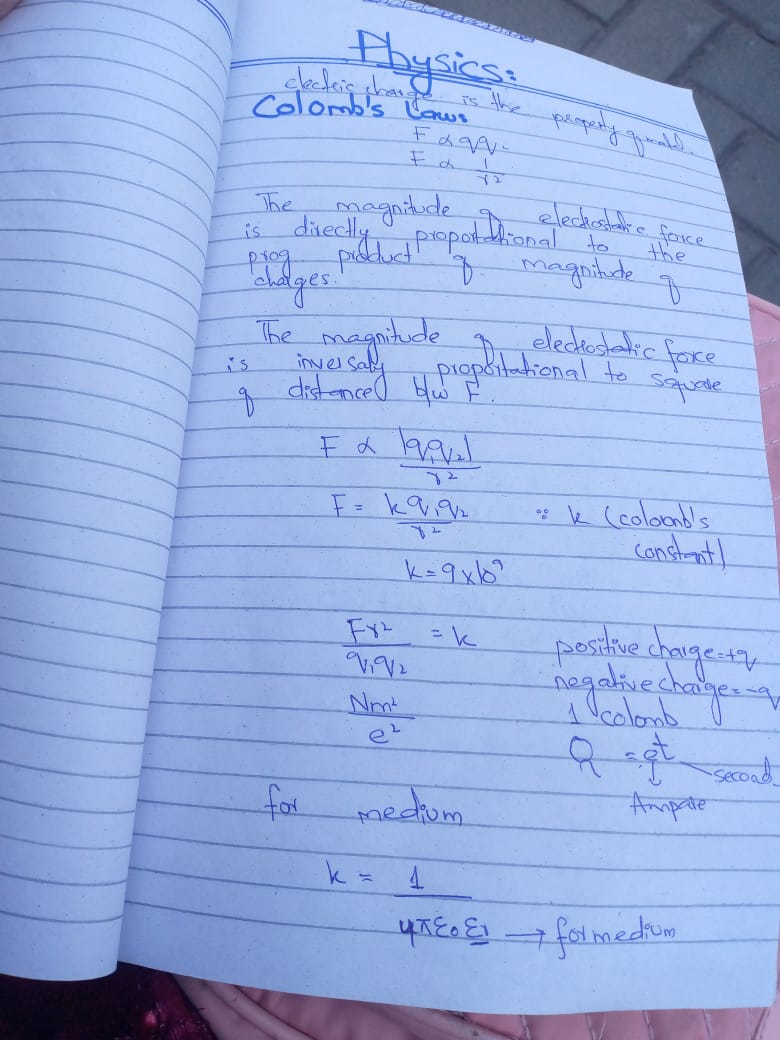 Physics:
electric charge is the property of matter.
Colomb's Law:
F α qq.
F α 1/r²
The magnitude of electrostatic force
is directly proportational to the
prog product of magnitude of
charges.
The magnitude of electrostatic force
is inversaly proportational to square
of distance b/w F.
F α |q₁q₂|/r²
F = k q₁q₂/r² ∵ k (coloomb's
constant)
k = 9x10⁹
Fr²/q₁q₂ = k positive charge=+q
negative charge=-q
Nm²/e² 1 colomb
Q = et
second
Ampare
for medium
k = 1/4πε₀εr → for medium